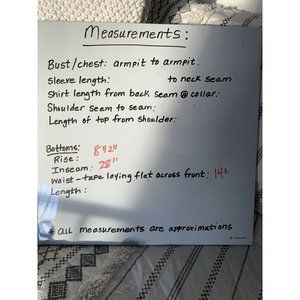 Measurements:
Bust/chest: armpit to armpit.
Sleeve length: to neck seam
Shirt length from back seam @ collar:
Shoulder seam to seam:
Length of top from shoulder:
Bottoms:
Rise: 8 1/2"
Inseam: 28"
Waist - tape laying flat across front: 14"
Length:
* ALL measurements are approximations